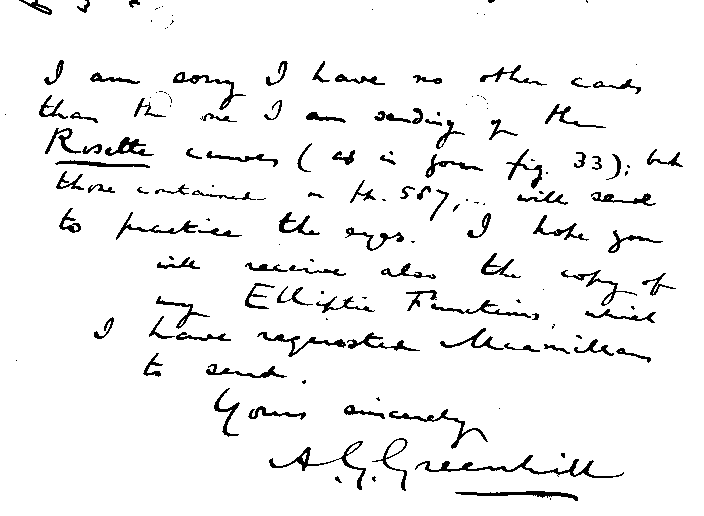 I am sorry I have no other cards
than the one I am sending of the
Rosette curves (as in your fig. 33); but
those contained in 557,... will send
to practice the eyes. I hope you
will receive also the copy of
my Elliptic Functions, which
I have requested Macmillan
to send.
Yours sincerely
A.G. Greenhill